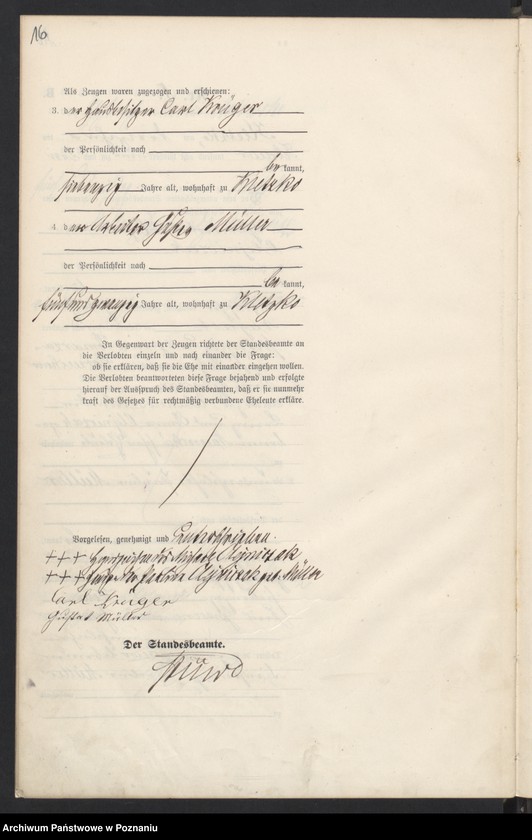 16
Als Zeugen waren zugezogen und erschienen:
3. der Hausbesitzer Carl Krüger
der Persönlichkeit nach
bekannt,
siebenzig Jahre alt, wohnhaft zu Kletzko
4. der Arbeiter Gustav Müller
der Persönlichkeit nach
bekannt,
fünfundzwanzig Jahre alt, wohnhaft zu Kletzko
In Gegenwart der Zeugen richtete der Standesbeamte an
die Verlobten einzeln und nach einander die Frage:
ob sie erklären, daß sie die Ehe mit einander eingehen wollen.
Die Verlobten beantworteten diese Frage bejahend und erfolgte
hierauf der Ausspruch des Standesbeamten, daß er sie nunmehr
kraft des Gesetzes für rechtmäßig verbundene Eheleute erkläre.
Vorgelesen, genehmigt und unterschrieben.
+++ Handzeichen des
+++ geb. Müller
Carl Krüger
Gustav Müller
Der Standesbeamte.
Archiwum Państwowe w Poznaniu